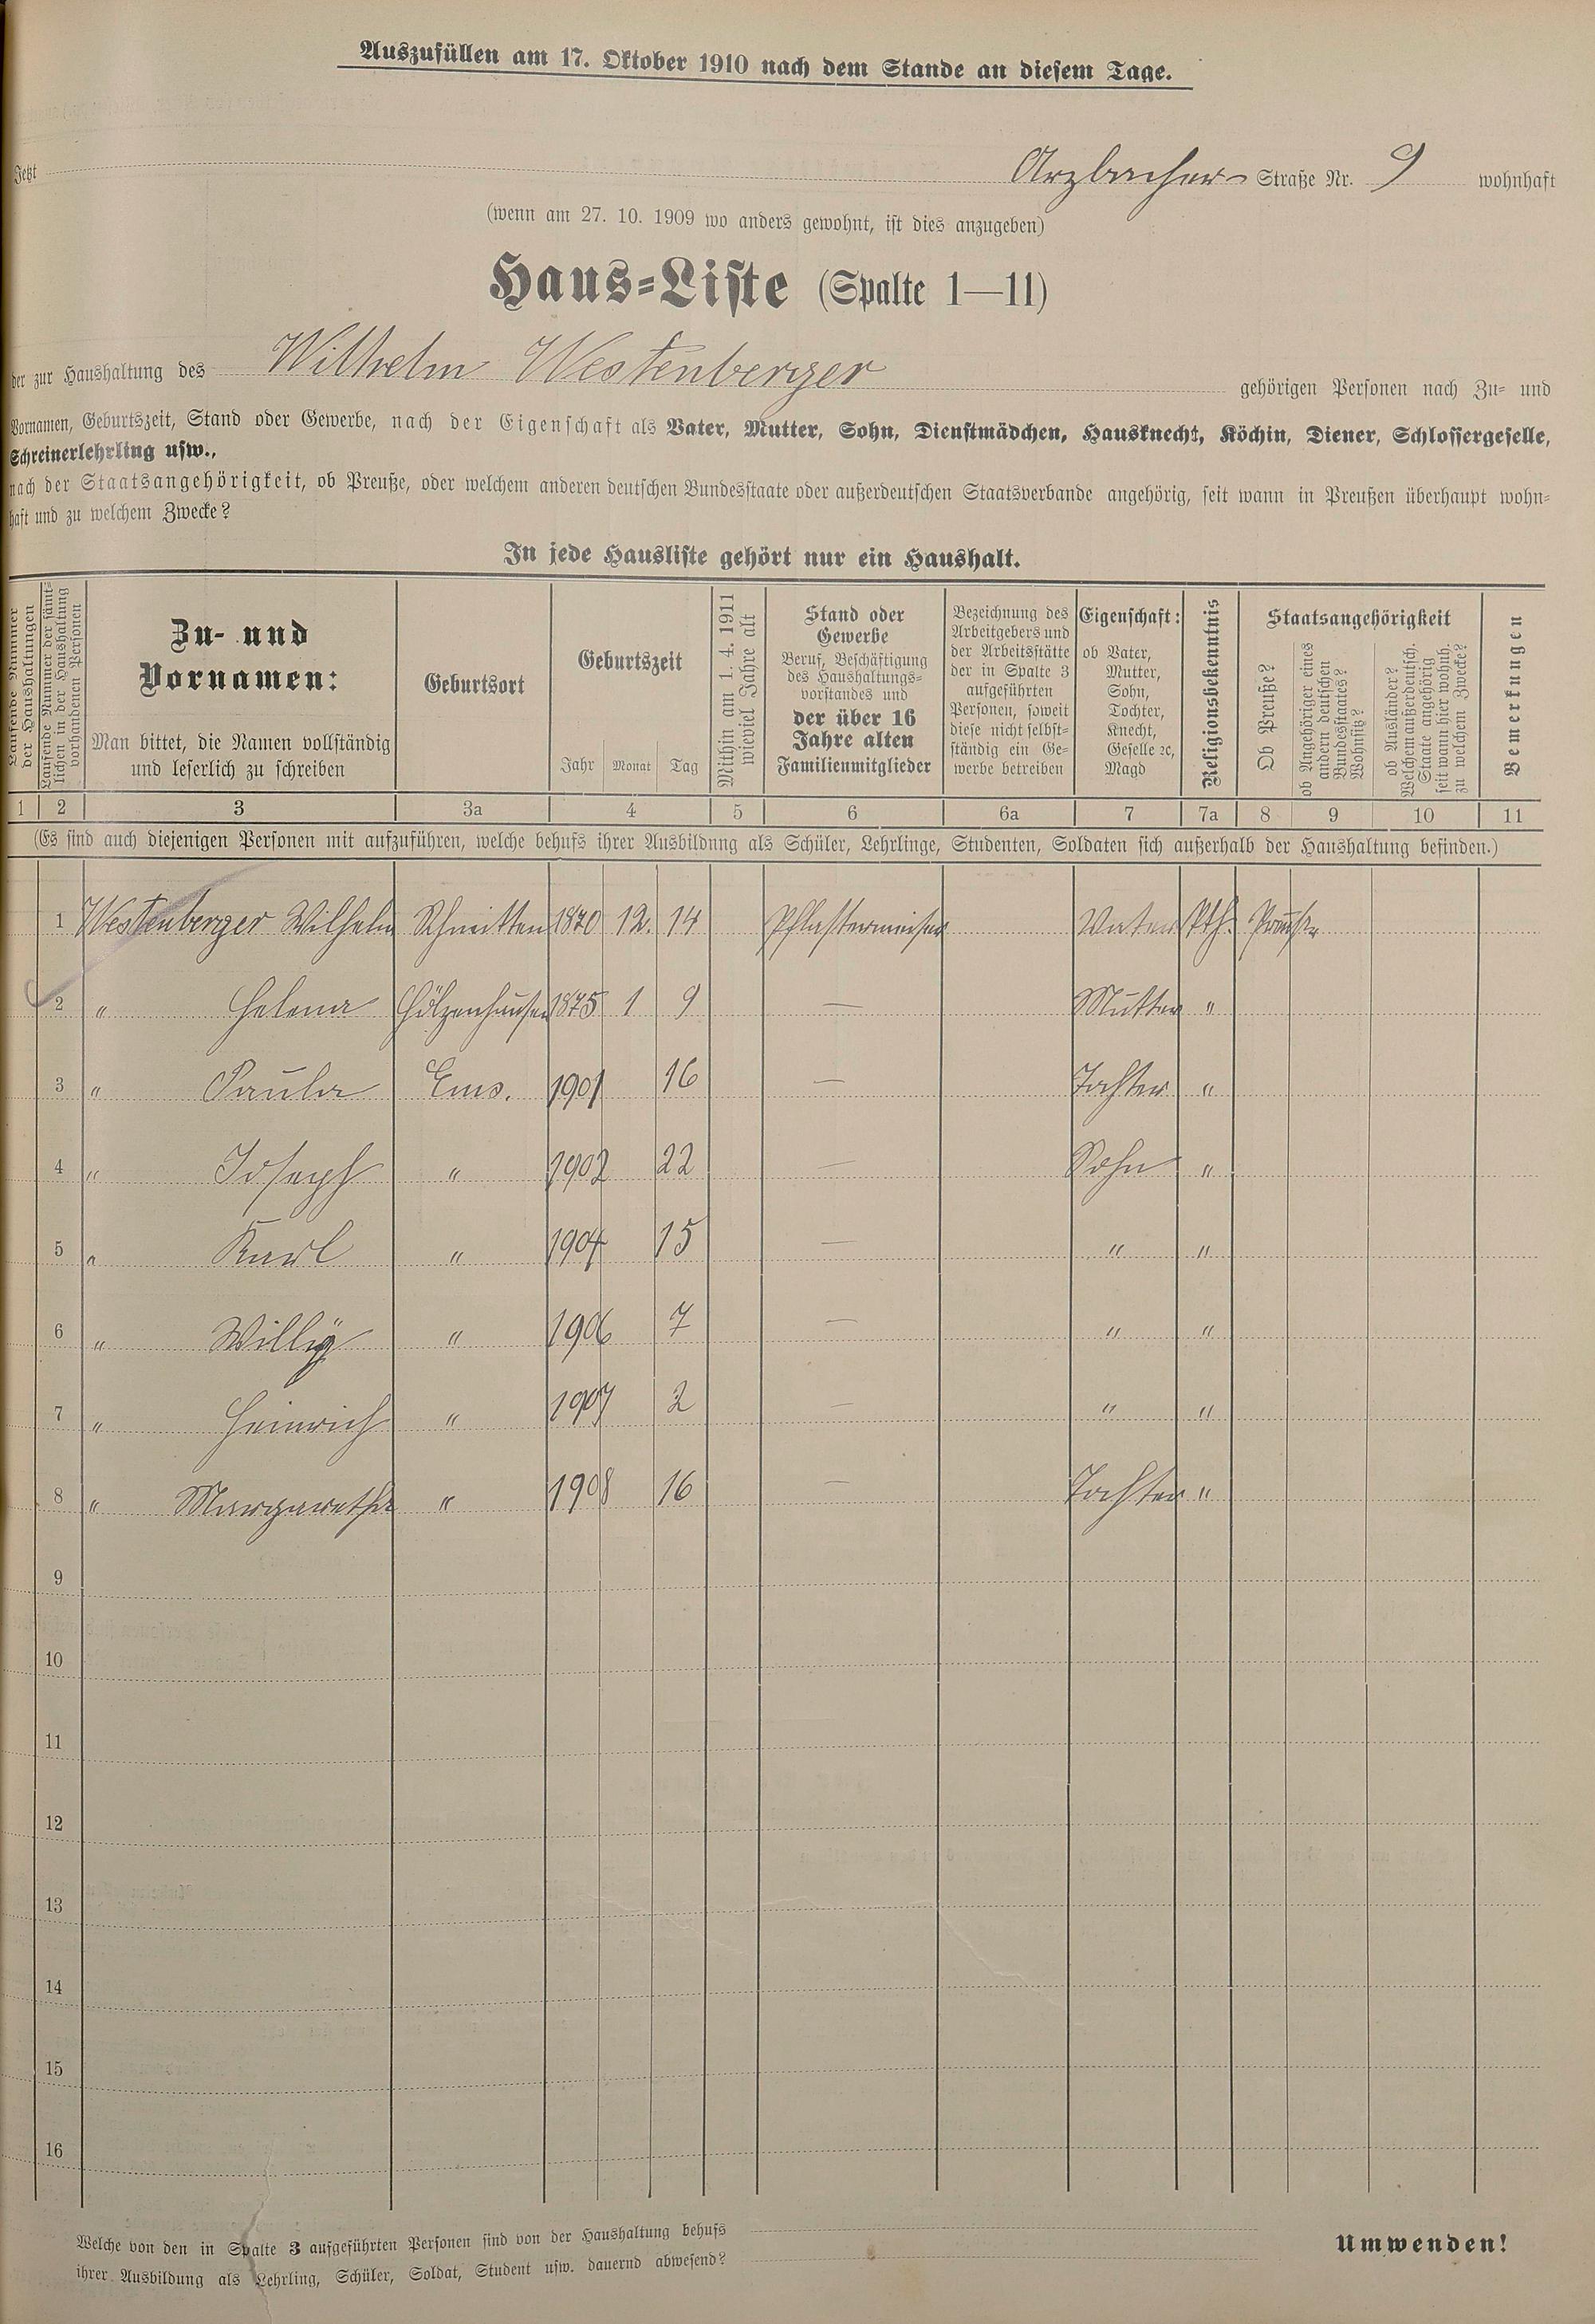 Auszufüllen am 17. Oktober 1910 nach dem Stande an diesem Tage.
Jetzt Arzbacher Straße Nr. 9 wohnhaft
(wenn am 27. 10. 1909 wo anders gewohnt, ist dies anzugeben)
Haus=Liste (Spalte 1—11)
der zur Haushaltung des Wilhelm Westenberger gehörigen Personen nach Zu= und
Vornamen, Geburtszeit, Stand oder Gewerbe, nach der Eigenschaft als Vater, Mutter, Sohn, Dienstmädchen, Hausknecht, Köchin, Diener, Schlossergeselle,
Schreinerlehrling usw.,
nach der Staatsangehörigkeit, ob Preuße, oder welchem anderen deutschen Bundesstaate oder außerdeutschen Staatsverbande angehörig, seit wann in Preußen überhaupt wohn=
haft und zu welchem Zwecke?
In jede Hausliste gehört nur ein Haushalt.
Laufende Nummer
der Haushaltungen
Laufende Nummer der sämt=
lichen in der Haushaltung
vorhandenen Personen
Zu- und
Vornamen:
Man bittet, die Namen vollständig
und leserlich zu schreiben
Geburtsort
Geburtszeit
Jahr Monat Tag
Mithin am 1. 4. 1911
wieviel Jahre alt
Stand oder
Gewerbe
Beruf, Beschäftigung
des Haushaltungs=
vorstandes und
der über 16
Jahre alten
Familienmitglieder
Bezeichnung des
Arbeitgebers und
der Arbeitsstätte
der in Spalte 3
aufgeführten
Personen, soweit
diese nicht selbst=
ständig ein Ge=
werbe betreiben
Eigenschaft:
ob Vater,
Mutter,
Sohn,
Tochter,
Knecht,
Geselle ꝛc,
Magd
Religionsbekenntnis
Staatsangehörigkeit
Ob Preuße?
ob Angehöriger eines
andern deutschen
Bundesstaates?
Wohnsitz?
ob Ausländer?
Welchem außerdeutsch.
Staate angehörig
seit wann hier wohnh.
zu welchem Zwecke?
Bemerkungen
1 2 3 3a 4 5 6 6a 7 7a 8 9 10 11
(Es sind auch diejenigen Personen mit aufzuführen, welche behufs ihrer Ausbildung als Schüler, Lehrlinge, Studenten, Soldaten sich außerhalb der Haushaltung befinden.)
1 Westenberger Wilhelm Schmitten 1870 12. 14 Pflastermeister Vater Kth. Preuße
2 " Helena Hölzenhausen 1875 1 9 — Mutter "
3 " Paula Ems. 1901 16 — Tochter "
4 " Joseph " 1902 22 — Sohn "
5 " Karl " 1904 15 — " "
6 " Willÿ " 1906 7 — " "
7 " Heinrich " 1907 2 — " "
8 " Margaretha " 1908 16 — Tochter "
9
10
11
12
13
14
15
16
Welche von den in Spalte 3 aufgeführten Personen sind von der Haushaltung behufs
ihrer Ausbildung als Lehrling, Schüler, Soldat, Student usw. dauernd abwesend?
Umwenden!